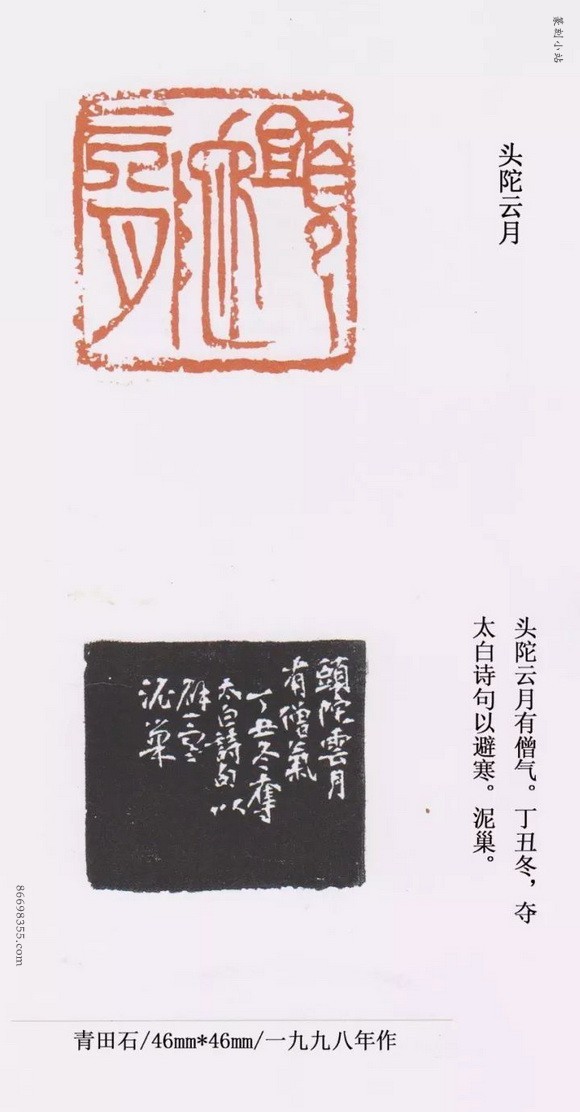 篆刻小站
头陀云月
頭陀雲月
有僧氣
丁丑冬奪
太白詩句以
辟寒
泥巢
头陀云月有僧气。丁丑冬，夺
太白诗句以避寒。泥巢。
86698355.com
青田石/46mm*46mm/一九九八年作